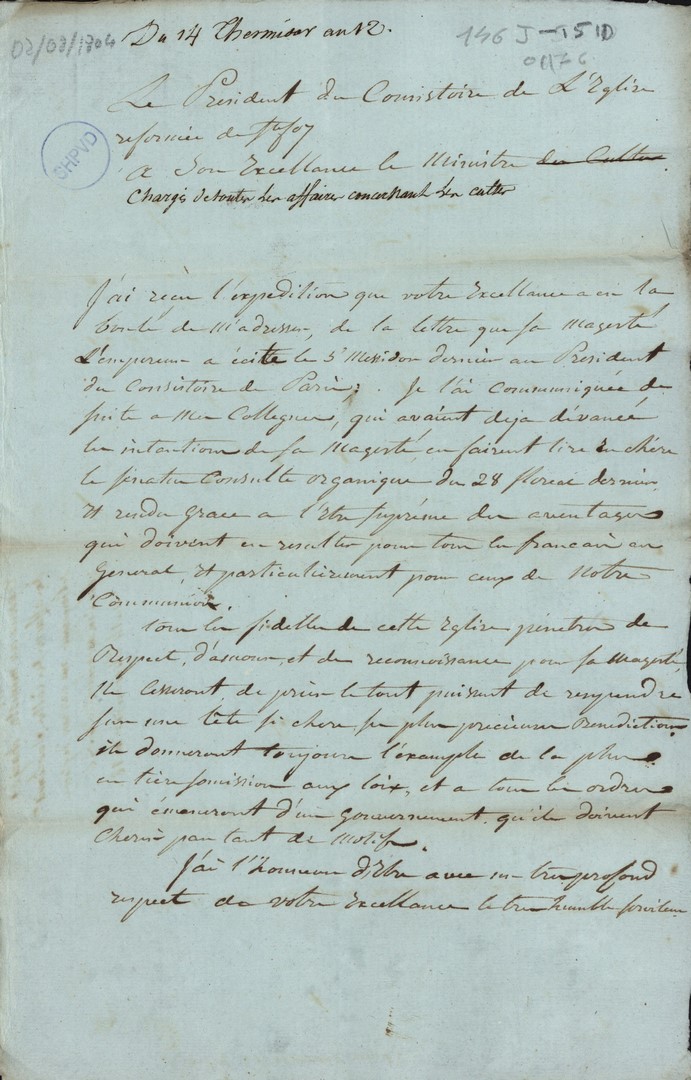 Du 14 Thermidor an 12.
02/08/1804
146 J - 151D
01176
Le Président du Consistoire de L'Eglise
reformée de Ste foy
OHPVD
A Son Excellance le Ministre des Cultes
Chargé de toutes les affaires concernant les cultes
J'ai reçu l'expedition que votre Excellance a eu la
bonté de m'adresser, de la lettre que sa Magesté
L'empereur a écite le 5e Messidor dernier au President
du Consistoire de Paris; Je l'ai Communiquée de
suite a mes Collegues, qui avaient deja dévancé
les intentions de sa Magesté, en faisant lire en chère
le senatus Consulte organique du 28 floreal dernier,
et rendu grace a l'Etre suprême des aventages
qui doivent en resulter pour tous les francais en
General, et particulièrement pour ceux de Notre
Communion.
tous les fidelles de cette Eglise pénétrés de
Respect, d'amour, et de reconnoissance pour sa Magesté,
Ne Cesseront de prier le tout puissant de respendre
sur une tête si chere ses plus precieuses Benedictions
ils donneront toujours l'éxample de la plus
entière soumission aux loix, et a tous les ordres
qui émaneront d'un gouvernement qu'ils doivent
Cherir par tant de Motifs.
J'ai l'honneur d'Etre avec un tres profond
respect de votre Excellance le tres humble serviteur